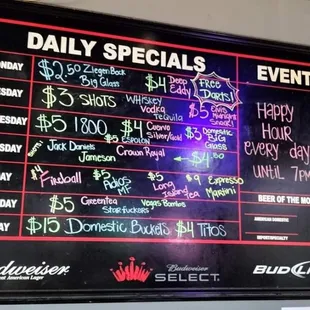 DAILY SPECIALS
EVENT
ONDAY
$2.50 Ziegen Bock
Big Glass
$4 Deep
Eddy
FREE
Darts!
SDAY
$3 SHOTS
WHISKEY
Vodka
Tequila
$5 Elvis
Midnight
Snack!
SDAY
$5 1800
$4 Cuervo
Silver/Gold
$5 ESPOLON
$3 Domestic
BIG
Glass
SDAY
Jack Daniels
Crown Royal
Jameson
$4.00
DAY
$4 Fireball
$5 Adios
MF
$5 Long
Island
Tea
$9 Expresso
Martini
DAY
$5 Greentea
Starfuckers
Vegas Bombs
DAY
$15 Domestic Buckets
$4 Titos
Happy
Hour
every day
UNTIL 7PM
BEER OF THE MO
AMERICAN/DOMESTIC
IMPORT/SPECIALTY
Budweiser
American Lager
Budweiser
SELECT
BUD LI